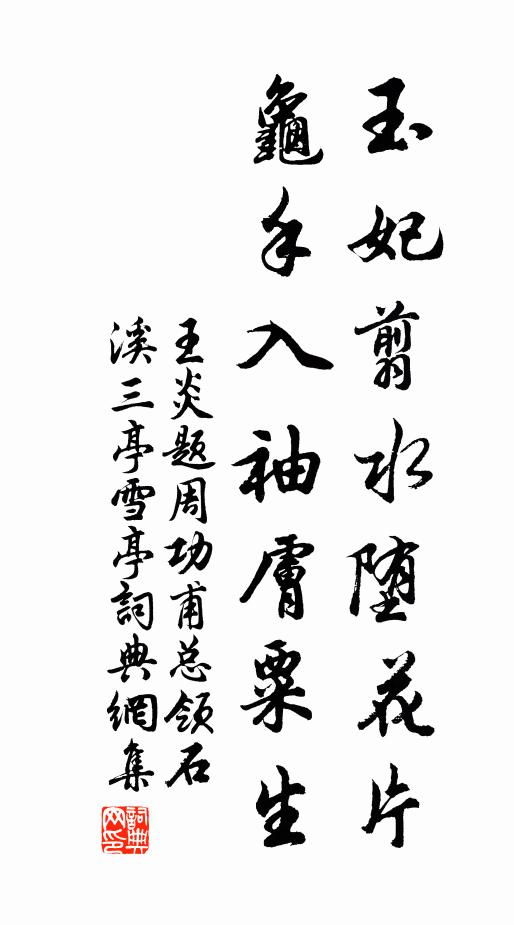 玉妃翦水堕花片
龜手入袖膚粟生
王炎题周功甫总领石
溪三亭雪亭詞典網集
詞典网印